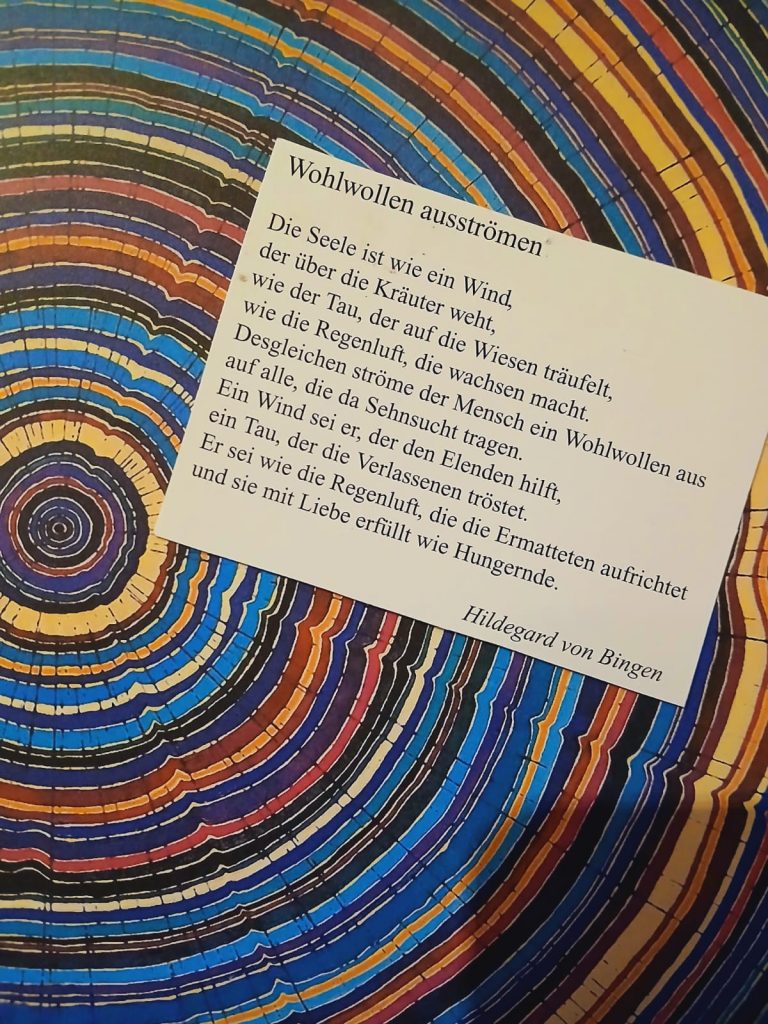 Wohlwollen ausströmen
Die Seele ist wie ein Wind,
der über die Kräuter weht,
wie der Tau, der auf die Wiesen träufelt,
wie die Regenluft, die wachsen macht.
Desgleichen ströme der Mensch ein Wohlwollen aus
auf alle, die da Sehnsucht tragen.
Ein Wind sei er, der den Elenden hilft,
ein Tau, der die Verlassenen tröstet.
Er sei wie die Regenluft, die die Ermatteten aufrichtet
und sie mit Liebe erfüllt wie Hungernde.
Hildegard von Bingen